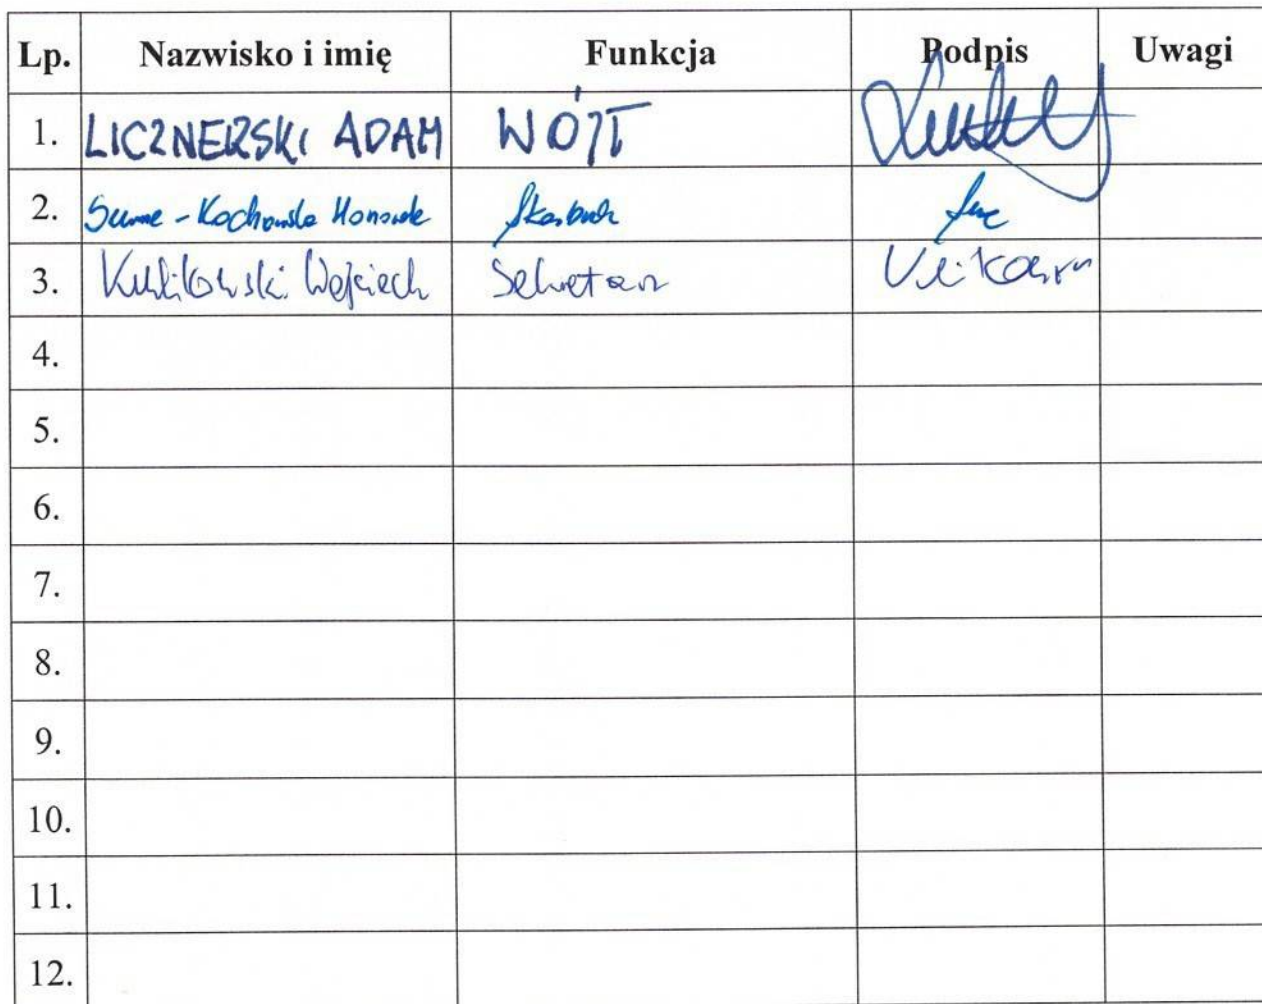 Lp. Nazwisko i imię Funkcja Podpis Uwagi
1. LICZNERSKI ADAM WÓJT
2. Kochowska Skarbnik
3. Wojciech Sekretarz
4.
5.
6.
7.
8.
9.
10.
11.
12.